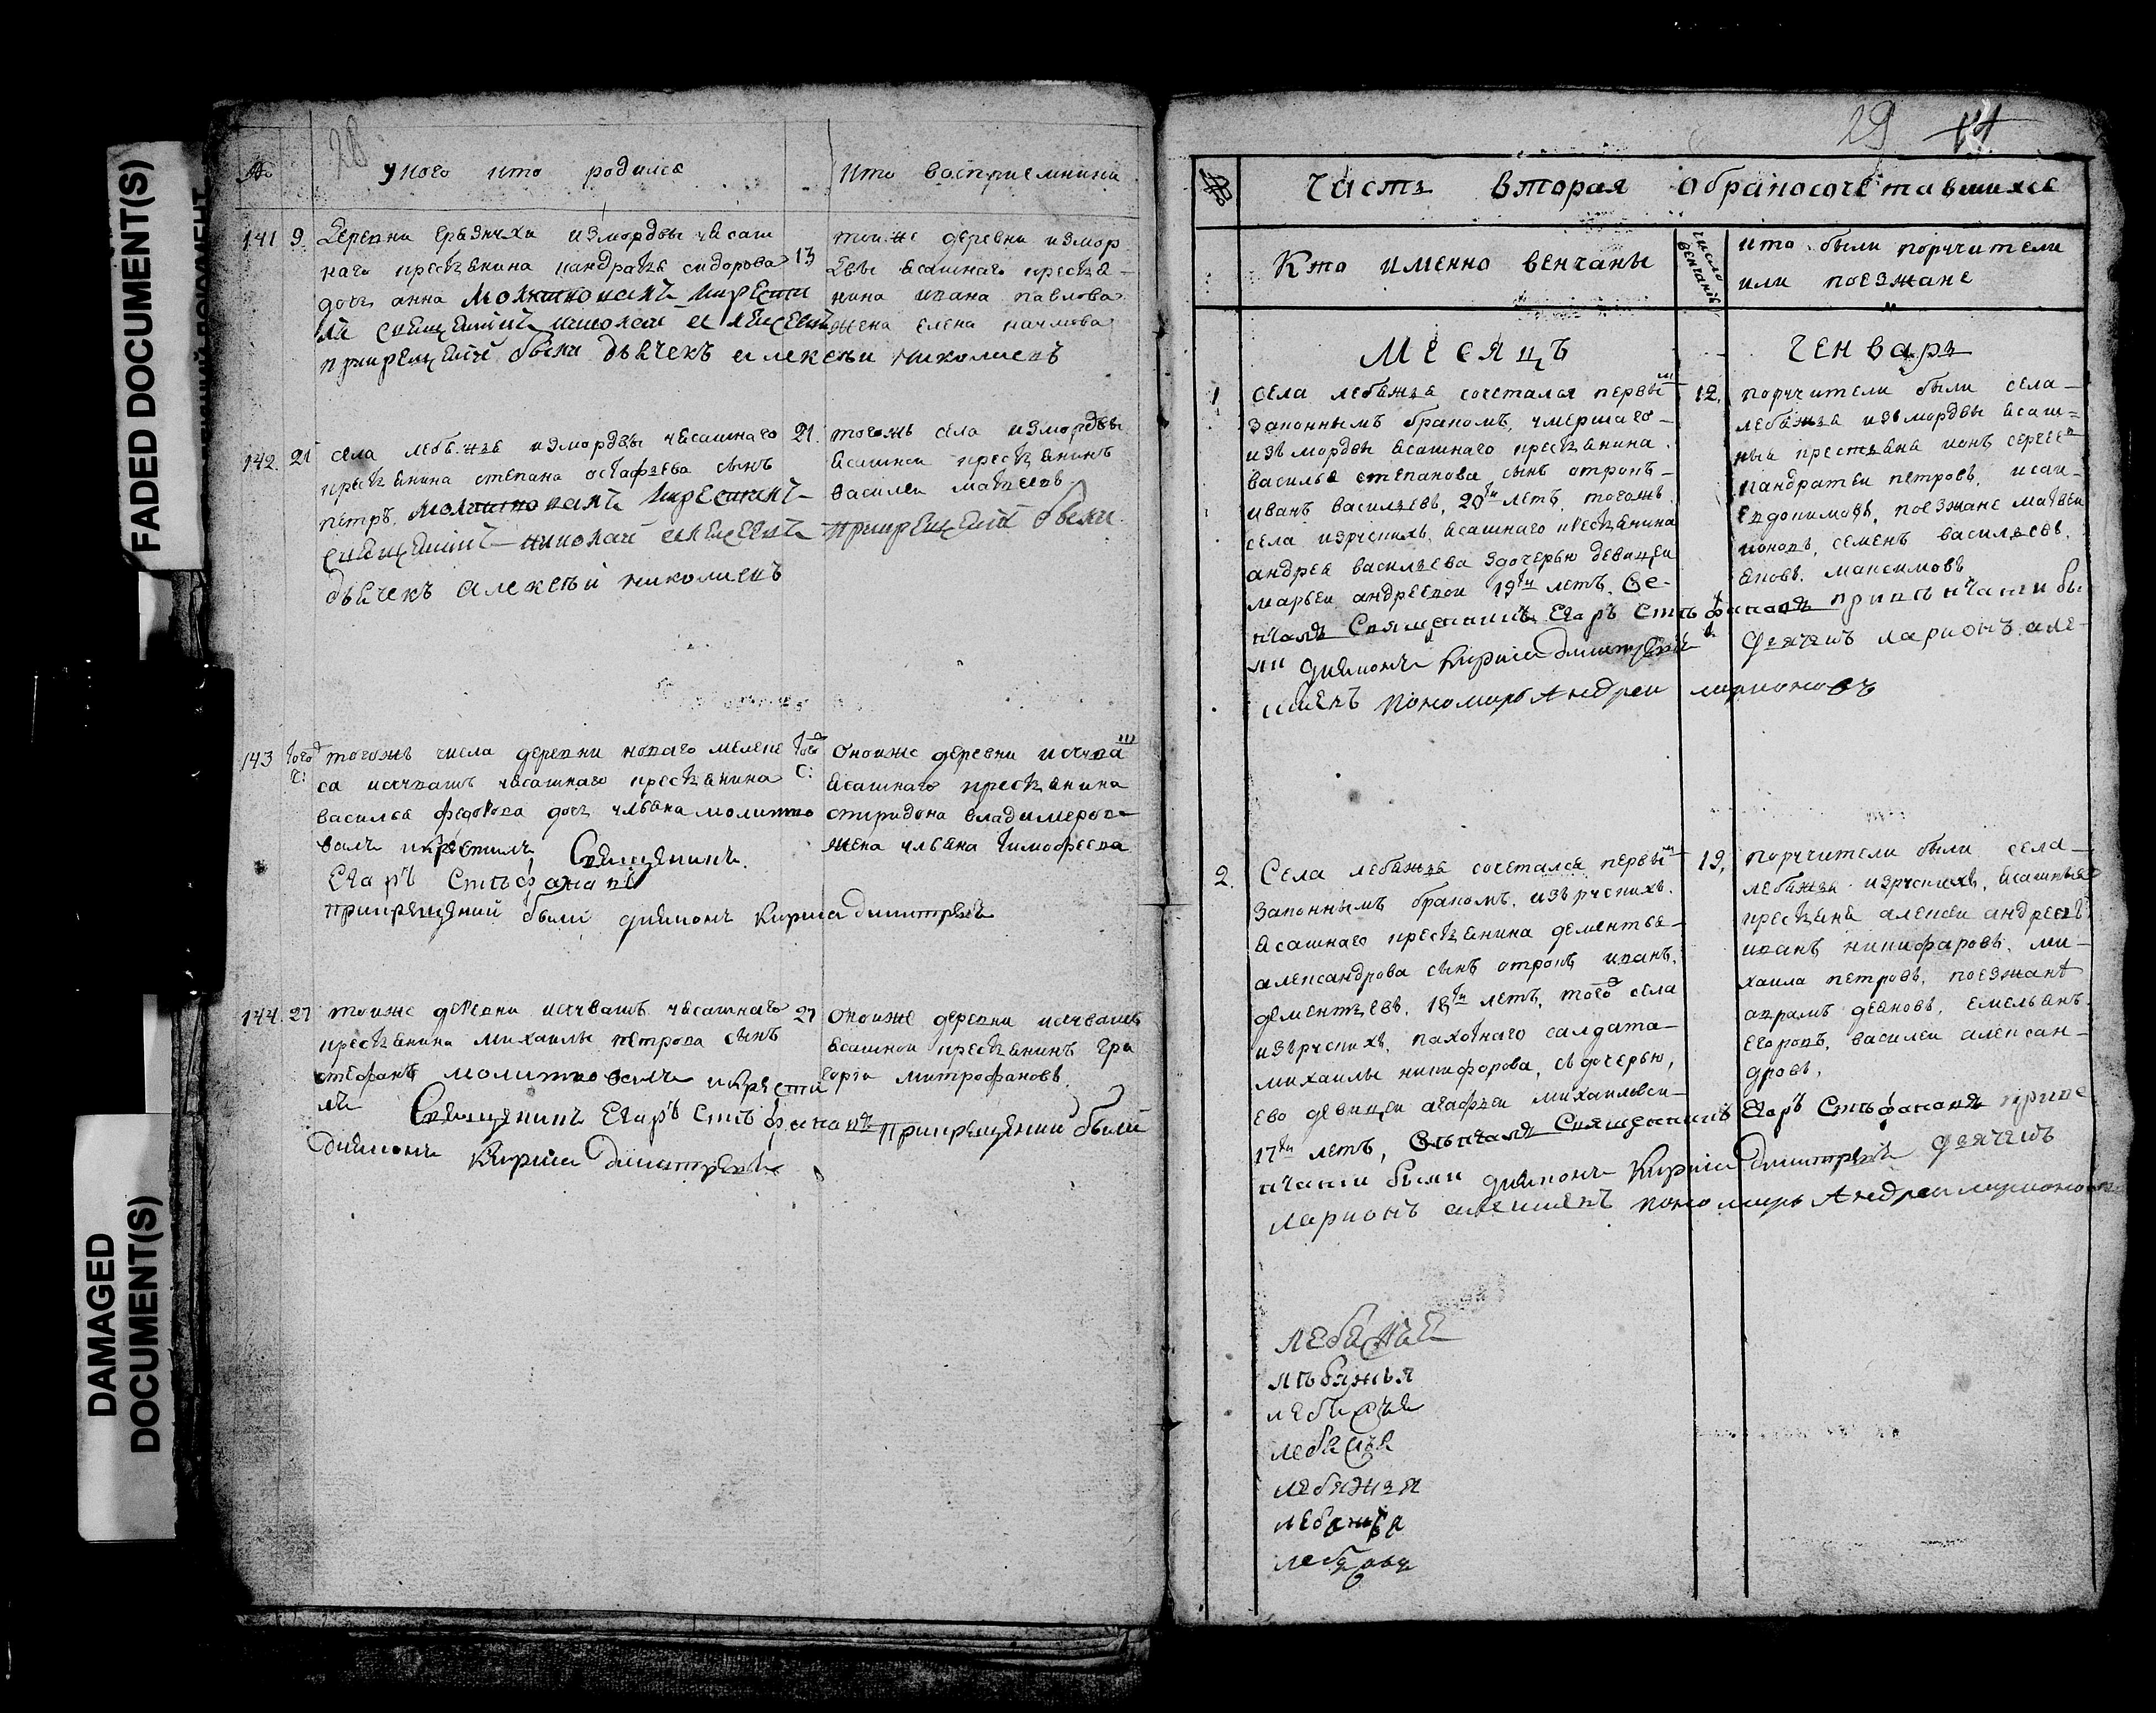 FADED DOCUMENT(S)
DAMAGED
DOCUMENT(S)
28
№
у кого кто родился
кто восприемники
141
9
Деревни ерьзикхи измордвы чесаш
наго крестьянина кандратья сидорова
дочь анна молитвовалъ и крести
лъ священникъ николай алексеевъ
при крещении были дьячекъ алексѣи николаевъ
13
тои же деревни измор
двы ясашнаго крестья-
нина ивана павлова
жена елена наумова
142.
21
села лебяжья измордвы чесашнаго
крестьянина степана остафьева сынъ
петръ, молитвовалъ и крестилъ
священникъ николай алексеевъ при крещении были
дьячекъ алексѣй николаевъ
21.
тогожъ села измордвы
ясашнои крестьянинъ
василеи матвеевъ
143
того
Ч:
тогожъ числа деревни новаго мелеке
са изчювашъ чесашнаго крестьянина
василья федорова дочь ульяна молитво
валъ и крестилъ Священникъ
Егаръ Стефановъ
при крещении были диаконъ Кирила Димитревъ
того
Ч:
оноиже деревни изчюваш
ясашнаго крестьянина
спиридона владимерова
жена ульяна тимофеева
144.
27
тоиже деревни изчювашъ чесашнаго
крестьянина михаилы петрова сынъ
стефанъ молитвовалъ и крести
лъ Священникъ Егаръ Стефановъ при крещении были
диаконъ Кирила Димитревъ
27
оноиже деревни изчювашъ
ясашнои крестьянинъ гри
горей митрофановъ
29
№
Часть вторая обракосочетавшихся
Кто именно венчаны
число венчанiя
кто были поручители
или поезжане
Месяцъ Генварь
1
села лебяжья сочетался первым
законнымъ бракомъ, умершаго
изъ мордвы ясашнаго крестьянина
василья степанова сынъ отрокъ
иванъ васильевъ, 20ти летъ, тогожъ
села изрускихъ ясашнаго крестьянина
андрея васильева здочерью девицеи
марьеи андреевои 19ти летъ. Ве-
нчалъ Священникъ Егаръ Стефановъ при венчании бы
ли диаконъ Кирила Димитревъ дьячекъ ларионъ але
шаевъ пономарь Андреи ларионовъ
12.
поручители были села
лебяжья изъ мордвы ясаш=
ныя крестьяне ионъ сергеев
кандратеи петровъ, исаи
евдокимовъ, поезжане матвеи
ионовъ, семенъ васильевъ,
яковъ максимовъ
2.
Села лебяжья сочетался первым
законнымъ бракомъ, изърускихъ
ясашнаго крестьянина дементья
александрова сынъ отрокъ иванъ
дементьевъ. 18ти летъ, того села
изърускихъ, пахотнаго салдата
михаилы никифорова, съдочерью,
ево девицеи агафьеи михаиловои
17ти летъ, Венчалъ Священникъ Егаръ Стефановъ приве
нчании были диаконъ Кирила Димитревъ дьячекъ
ларионъ алешаевъ пономарь Андреи ларионовъ
19,
поручители были села
лебяжья изрускихъ, ясашныя
крестьяне алексеи андреевъ
иванъ никифаровъ, ми-
хаила петровъ, поезжанѣ
аврамъ деяновъ, емельянъ
егоровъ, василеи алексан-
дровъ,
лебяжья
лѣбяжья
лебяжья
лебяжья
лебяжья
лебяжья